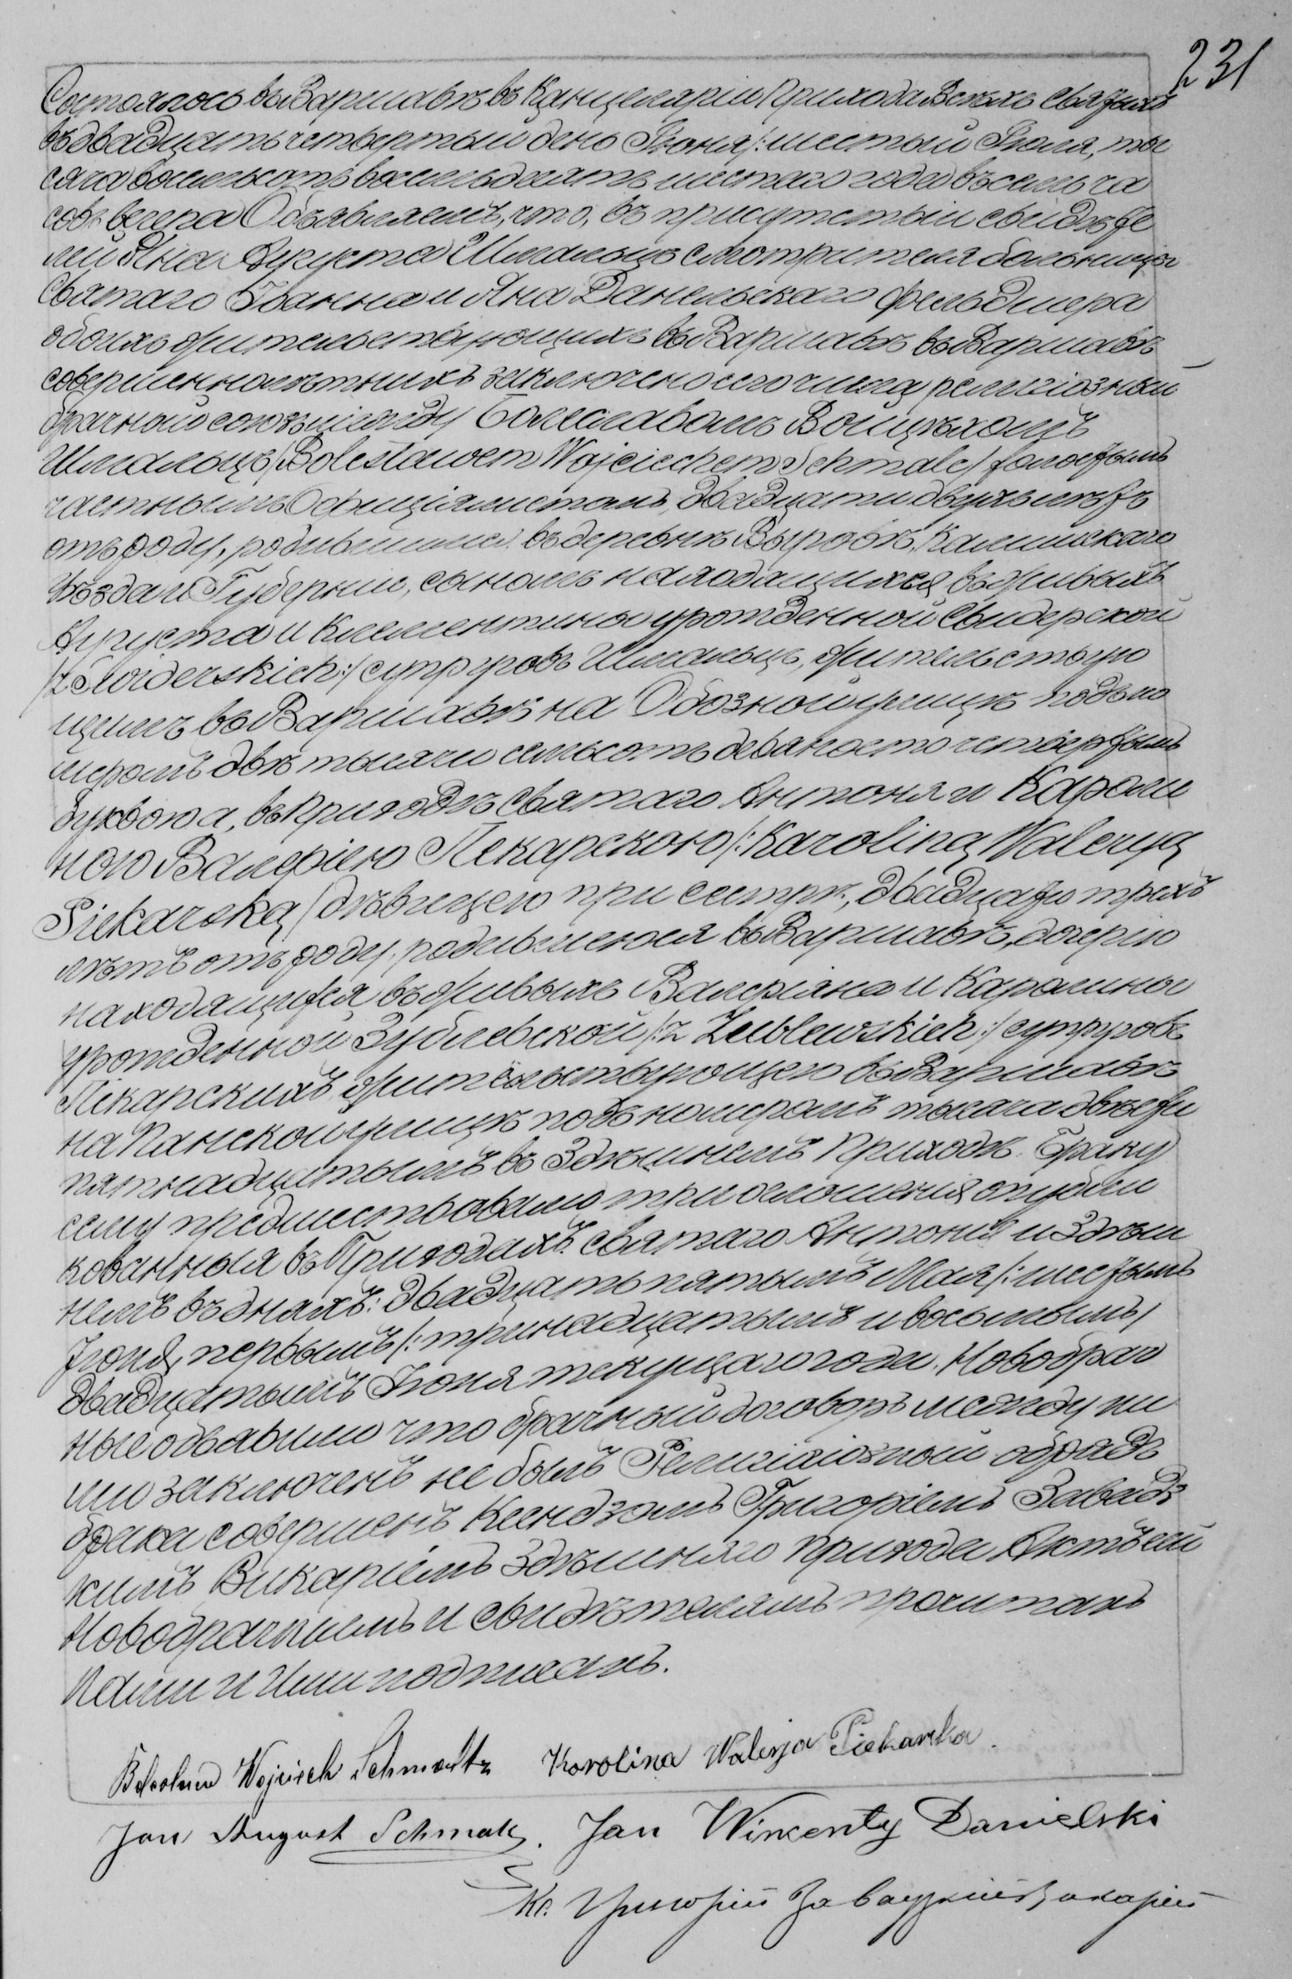 231
Состоялось въ Варшавѣ въ Канцеляріи Прихода Всѣхъ Святыхъ
въ двадцать четвертый день Іюня /: шестый Іюля, ты
сяча восемьсотъ восемьдесятъ шестаго года въ семь ча
совъ вечера Объявляемъ, что, въ присутствіи свидѣте
лей Яна Августа Шмальцъ смотрителя больницы
Святаго Іоанна и Яна Данельскаго фельдшера
обоихъ жительствующихъ въ Варшавѣ въ Варшавѣ
совершеннолѣтнихъ заключенъ сего числа религіозный
брачный союзъ между Болеславомъ Войцѣхомъ
Шмальцъ /Bolesławem Wojciechem Schmalc/ холостымъ
частнымъ Офиціялистомъ, двадцати двухъ лѣтъ
отъ роду, родившимся въ деревнѣ Выровѣ, Калишскаго
Уѣзда и Губерніи, сыномъ находящихся въ живыхъ
Августа и Клементины урожденной Свидерской
/:z Swiderskich:/ супруговъ Шмальцъ, жительствую
щимъ въ Варшавѣ на Обозной улицѣ подъ но
меромъ двѣ тысячи семьсотъ девяносто четвертымъ
буквою а, въ Приходѣ Святаго Антонія и Кароли
ною Валеріею Пекарскою /:Karoliną Waleryą
Piekarską/ дѣвицею при сестрѣ, двадцати трехъ
лѣтъ отъ роду, родившеюся въ Варшавѣ, дочерью
находящихся въ живыхъ Валеріяна и Каролины
урожденной Зублевской /:z Zublewskich:/ супруговъ
Пекарскихъ жительствующею въ Варшавѣ
на Панской улицѣ подъ номеромъ тысяча двѣсти
пятнадцатымъ въ Здѣшнемъ Приходѣ. Браку
сему предшествовали три оглашенія опубли
кованныя въ Приходахъ: святаго Антонія и Здѣш
немъ въ дняхъ: двадцать пятымъ Мая /: шестымъ
Іюня, первымъ /: тринадцатымъ и восьмымъ /
двадцатымъ Іюня текущаго года. Новобрач
ные объявили что брачный договоръ между ни
ми заключенъ не былъ Религіозный обрядъ
брака совершенъ Ксендзомъ Григоріемъ Завадз
кимъ Викаріемъ Здѣшняго Прихода Актъ сей
Новобрачнымъ и свидѣтелямъ прочитанъ
Нами и Ими подписанъ.
Bolesław Wojciech Schmaltz Karolina Walerja Piekarska.
Jan August Schmalc. Jan Wincenty Danielski
Кс. Григорій Завадзкій Викарій